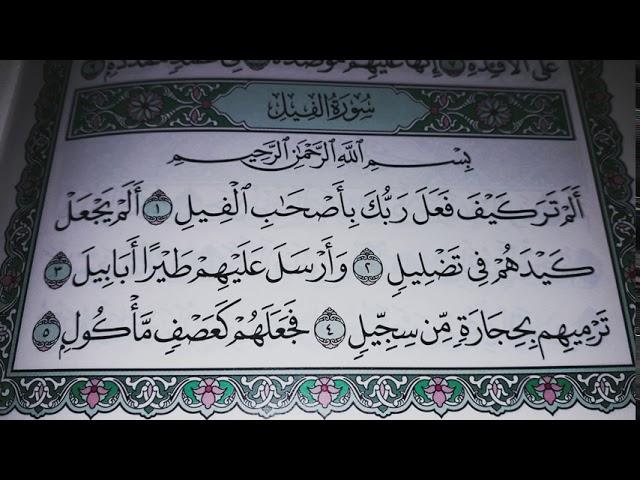 على الأفئدة ٧ إنها عليهم موصدة ٨ في عمد ممددة ٩
سُورَةُ الفِيلِ
بِسْمِ ٱللَّهِ ٱلرَّحْمَٰنِ ٱلرَّحِيمِ
أَلَمْ تَرَ كَيْفَ فَعَلَ رَبُّكَ بِأَصْحَابِ ٱلْفِيلِ ١ أَلَمْ يَجْعَلْ
كَيْدَهُمْ فِي تَضْلِيلٍ ٢ وَأَرْسَلَ عَلَيْهِمْ طَيْرًا أَبَابِيلَ ٣
تَرْمِيهِم بِحِجَارَةٍ مِّن سِجِّيلٍ ٤ فَجَعَلَهُمْ كَعَصْفٍ مَّأْكُولٍ ٥